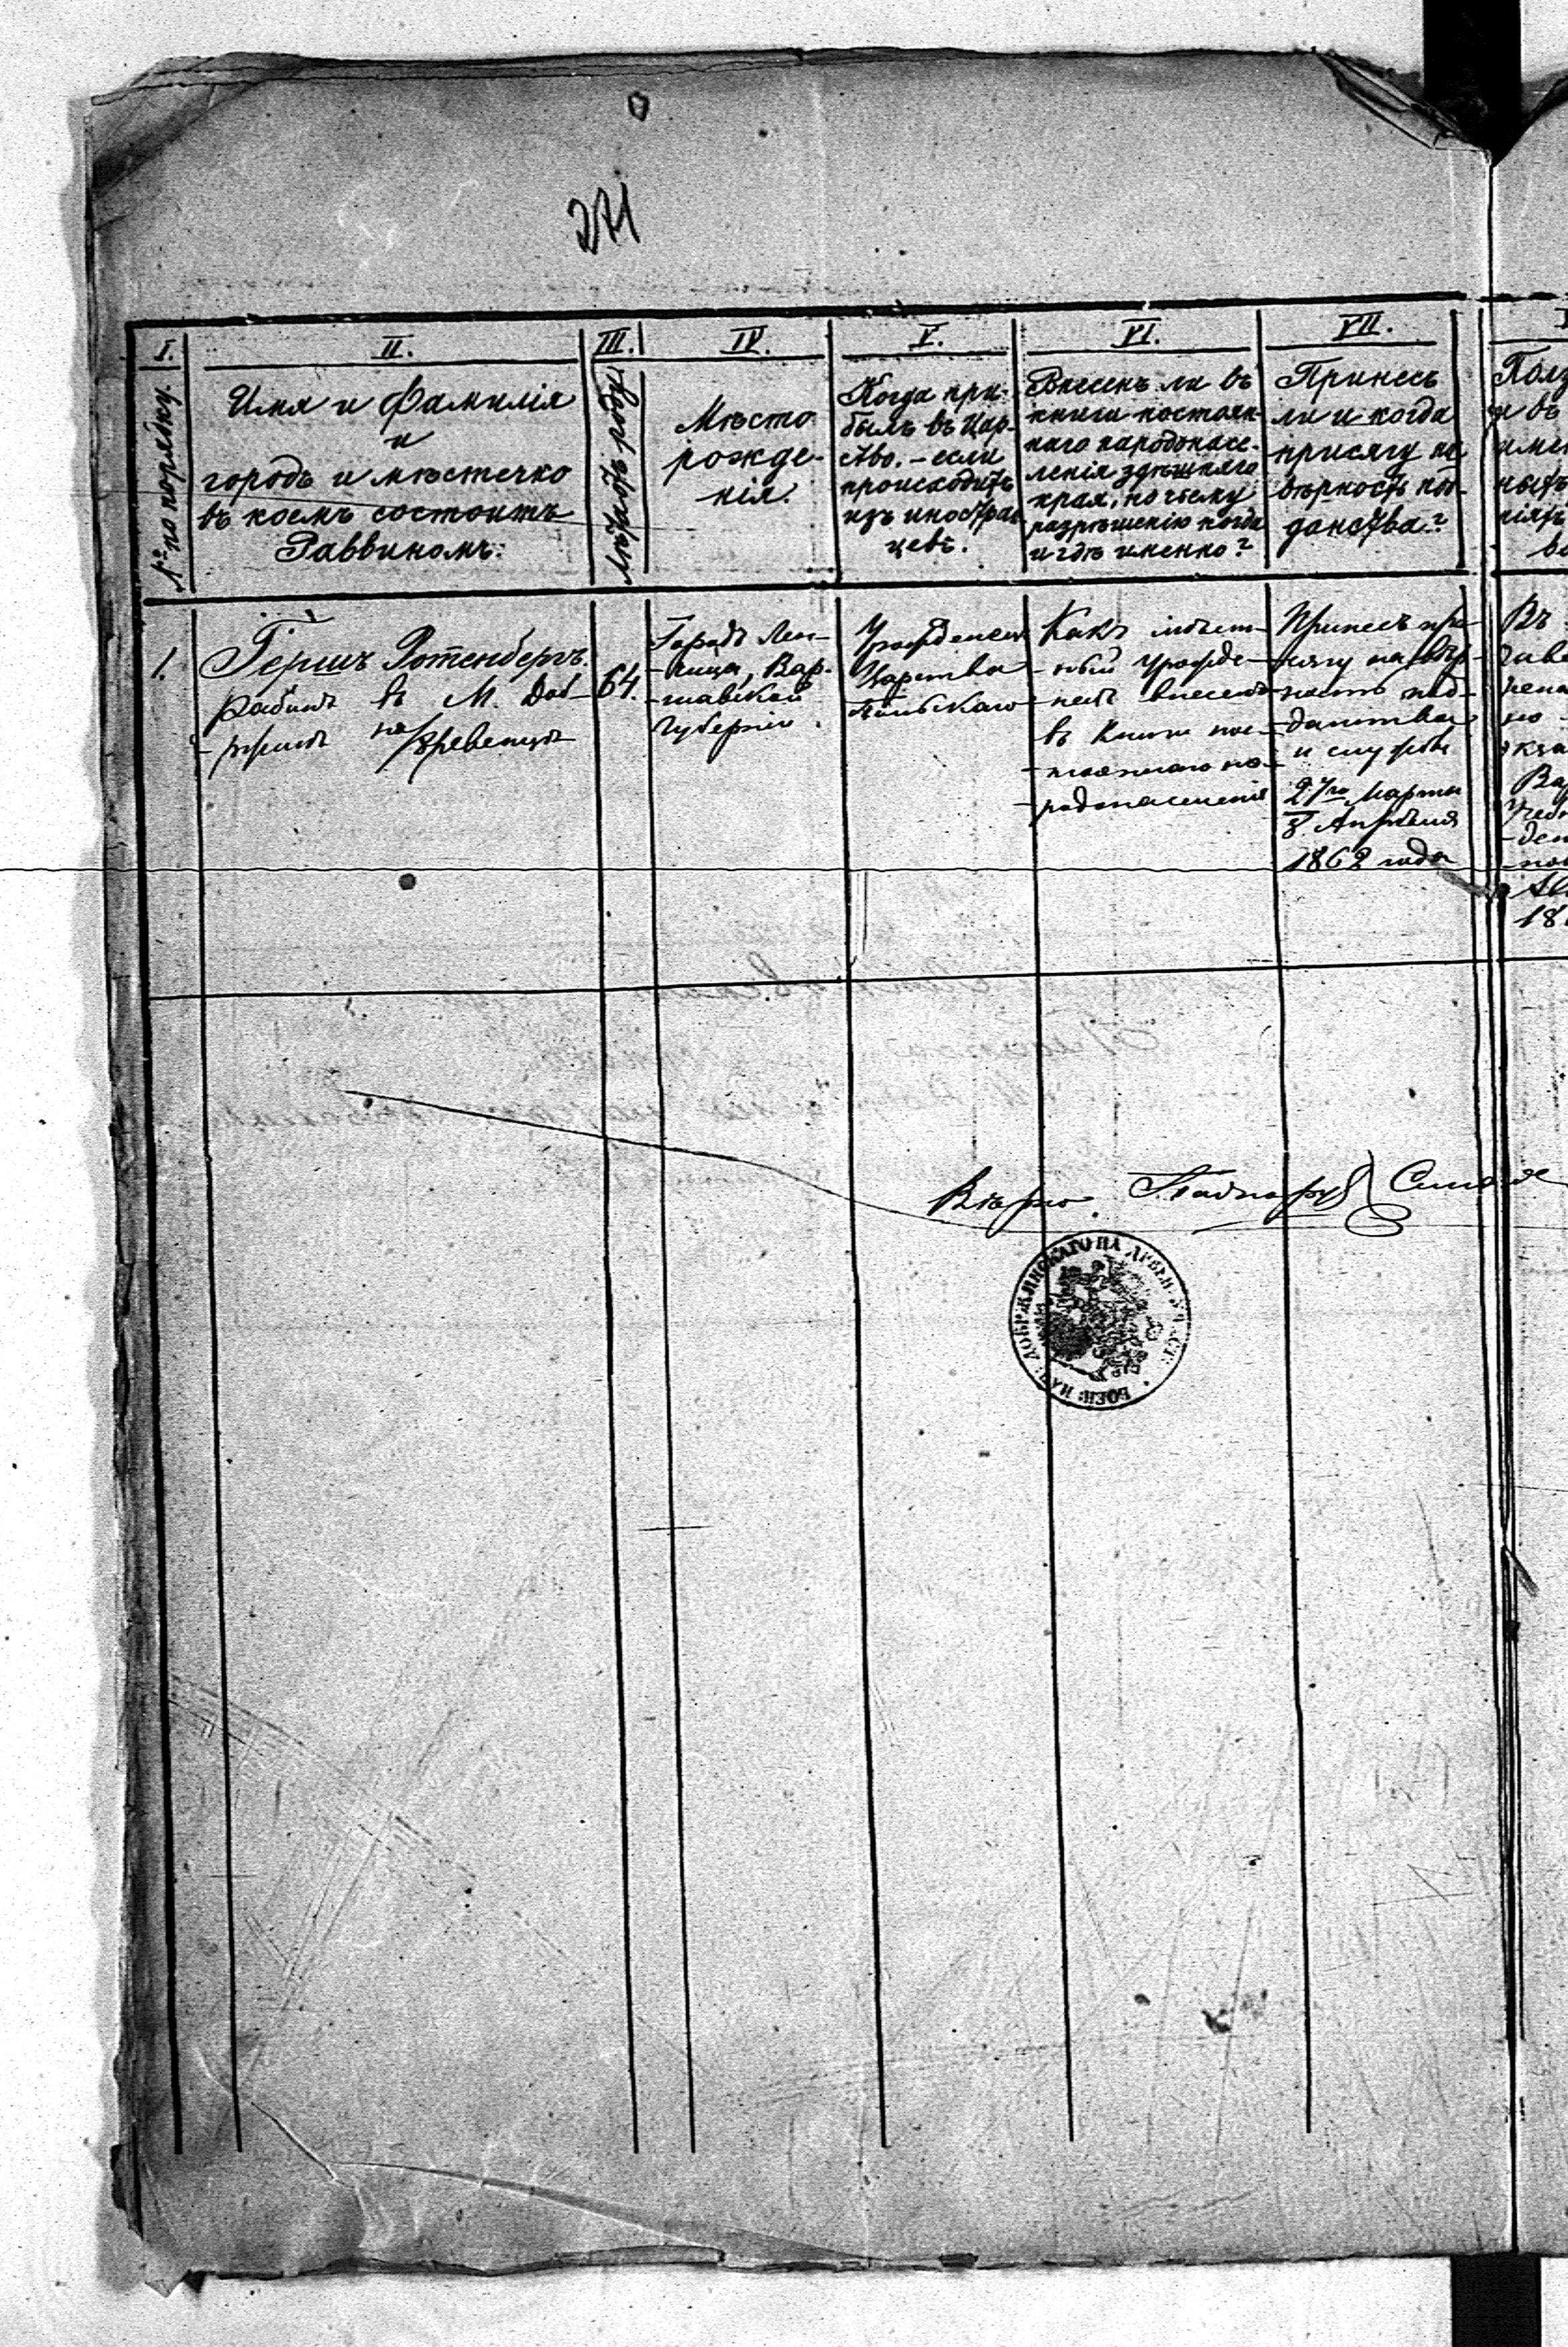 271
I.
№ по порядку.
II.
Имя и Фамилія
и
городъ и мѣстечко
въ коемъ состоитъ
Раввиномъ.
III.
Лѣтъ отъ роду
IV.
Мѣсто
рожде-
нія.
V.
Когда при-
былъ въ Цар-
ство. – если
происходитъ
изъ иностран
цевъ.
VI.
Внесенъ ли въ
книги постоян-
наго народонасе-
ленія здѣшняго
края, по чьему
разрѣшенію когда
и гдѣ именно?
VII.
Принесъ
ли и когда
присягу на
вѣрность под-
данства?
1.
Гершъ Ротенбергъ.
рабинъ въ М. Доб-
-ржинъ на/Древенцѣ
64.
Городъ Лен-
-чица, Вар-
-шавской
Губерніи.
Урожденецъ
Царства
Польскаго
Какъ мѣст-
-ный урожде-
-нецъ внесенъ
въ книги пос-
-тояннаго на-
-родонаселенія
Принесъ при-
сягу на вѣр-
-ность под-
-данства
и службы
27го Марта
8. Апрѣля
1862 года
Въ
18
Вѣрно.
ВОЕН: НАЧ: ДОБРЖИНСКАГО НА ДРЕВЕН: УЧАСТ: